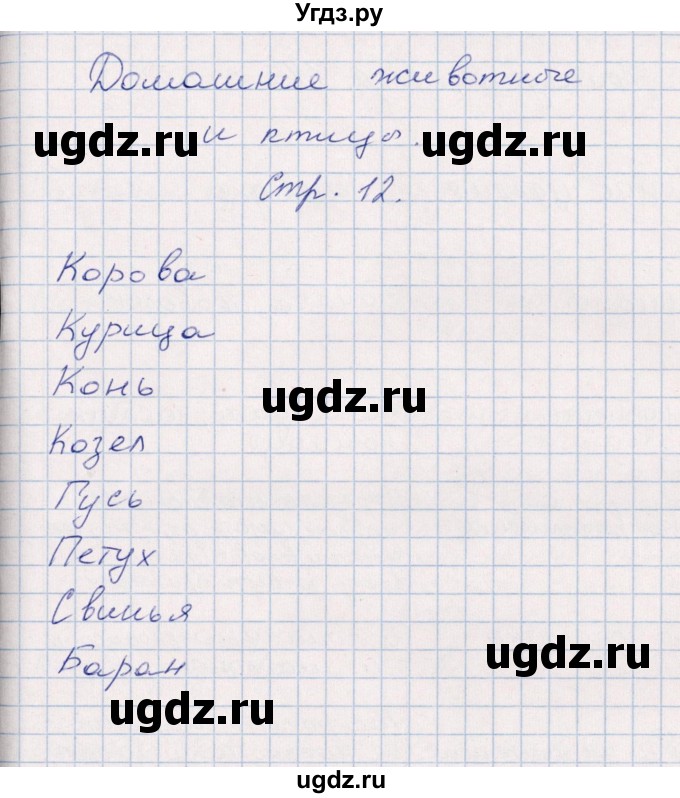 Угдз.ру
Домашние животные
ugdz.ru и птицы. ugdz.ru
Стр. 12.
Корова
Курица
Конь ugdz.ru
Козел
Гусь
Петух
Свинья
ugdz.ru
Баран
ugdz.ru
ugdz.ru